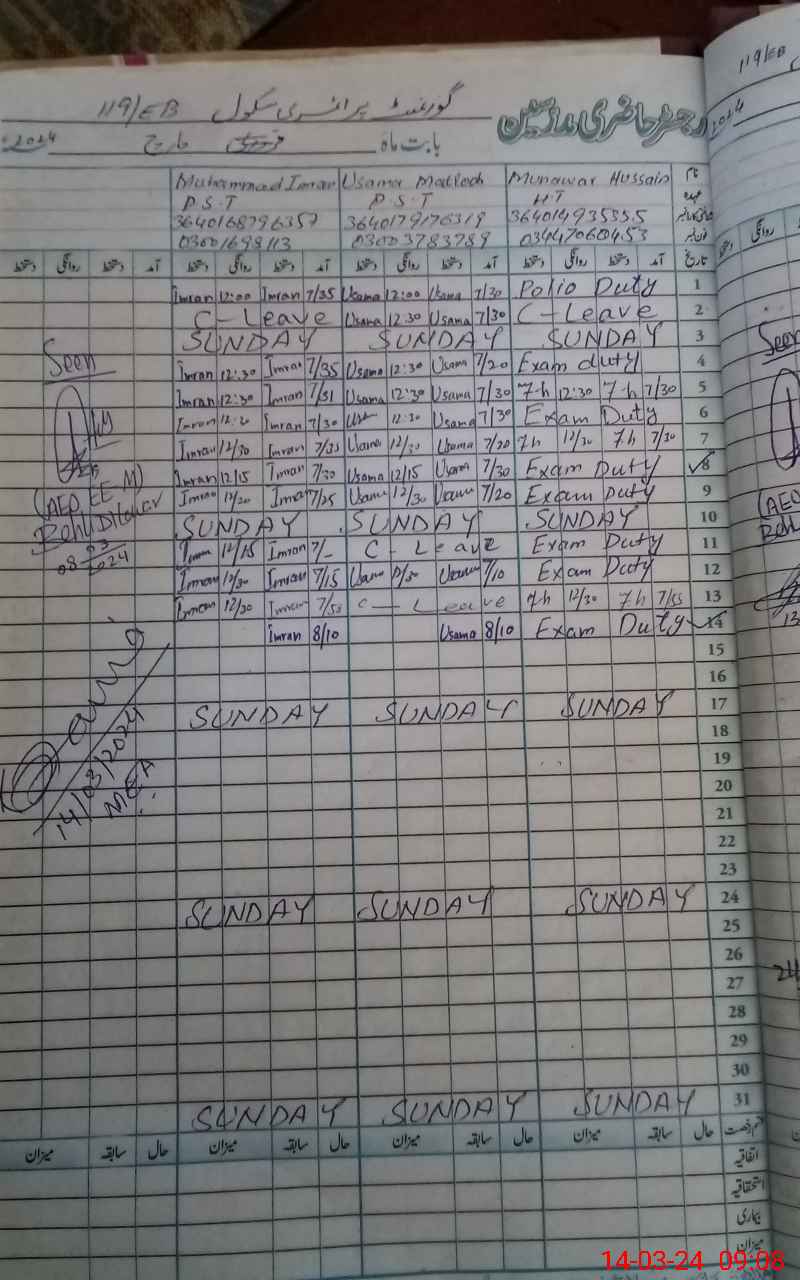 رجسٹر حاضری مدرسین گورنمنٹ پرائمری سکول 119/EB
بابت ماہ مارچ 2024
نام Munawar Hussain Usama Muhammad Imran
عہدہ H T P.S.T P.S.T
3640179176319
03447060453 03003783789 03001698113
تاریخ آمد دستخط روانگی دستخط آمد دستخط روانگی دستخط آمد دستخط روانگی دستخط آمد دستخط روانگی دستخط
1 Polio Duty Usama 12:00 Usama 7/30 Imran 12:00 Imran 7/35
2 C-Leave Usama 12:30 Usama 7/30 C-Leave
3 SUNDAY SUNDAY SUNDAY
4 Exam duty Usama 12:30 Usama 7/20 Imran 12:30 Imran 7/35
5 7h 12:30 7h 7/30 Usama 12:30 Usama 7/30 Imran 12:30 Imran 7/31
6 Exam Duty 12:30 Usama 7/30 Imran Imran 7/30
7 7h 12/30 7h 7/30 Usama 12/30 Usama 7/20 Imran 12/30 Imran 7/35
8 Exam Duty Usama 12/15 Usama 7/30 Imran 12/15 Imran 7/30
9 Exam Duty Usama 12/30 Usama 7/20 Imran 12/20 Imran 7/25
10 SUNDAY SUNDAY SUNDAY
11 Exam Duty C-Leave Imran 12/15 Imran 7/-
12 Exam Duty Usama Usama 7/10 Imran 12/30 Imran 7/15
13 7h 12/30 7h 7/55 C-Leave Imran 12/30 Imran
14 Exam Duty Usama 8/10 Imran 8/10
15
16
17 SUNDAY SUNDAY SUNDAY
18
19
20
21
22
23
24 SUNDAY SUNDAY SUNDAY
25
26
27
28
29
30
31 SUNDAY SUNDAY SUNDAY
قسم رخصت حال سابقہ میزان حال سابقہ میزان حال سابقہ میزان حال سابقہ میزان
اتفاقیہ
استحقاقیہ
بیماری
میزان
Seen
(AEO EE-M)
08 03 2024
14/03/2024
MEA
119/EB
2024
Seen
(AEO
13
14-03-24 09:08